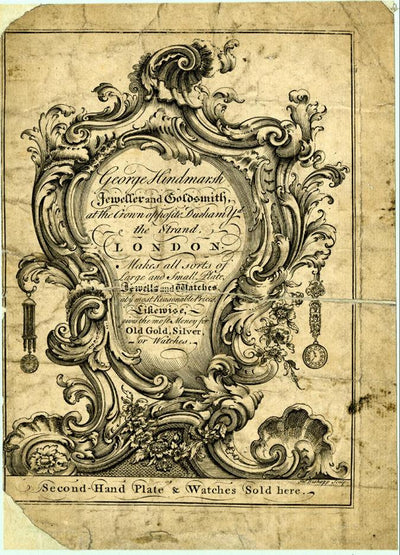 George Hindmarsh
Jeweller and Goldsmith,
at the Crown opposite Durham Yd.
the Strand,
LONDON
Makes all sorts of
Large and Small Plate,
Jewells and Watches
at y.e most Reasonable Prices,
Likewise,
gives the most Money for
Old Gold, Silver,
or Watches.
Second-Hand Plate & Watches Sold here.